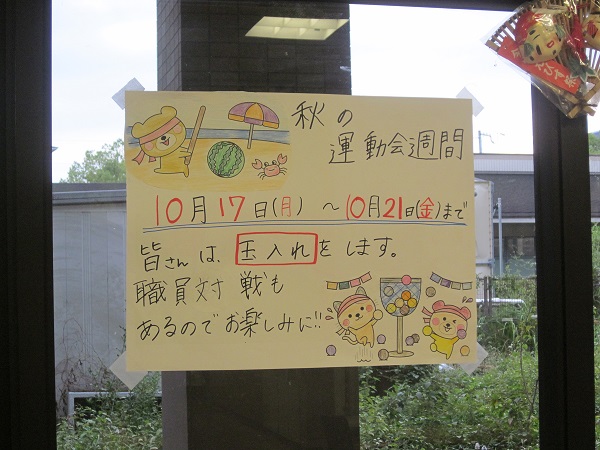 秋の
運動会週間
10月17日(月)～10月21日(金)まで
皆さんは、玉入れをします。
職員対戦も
あるのでお楽しみに!!